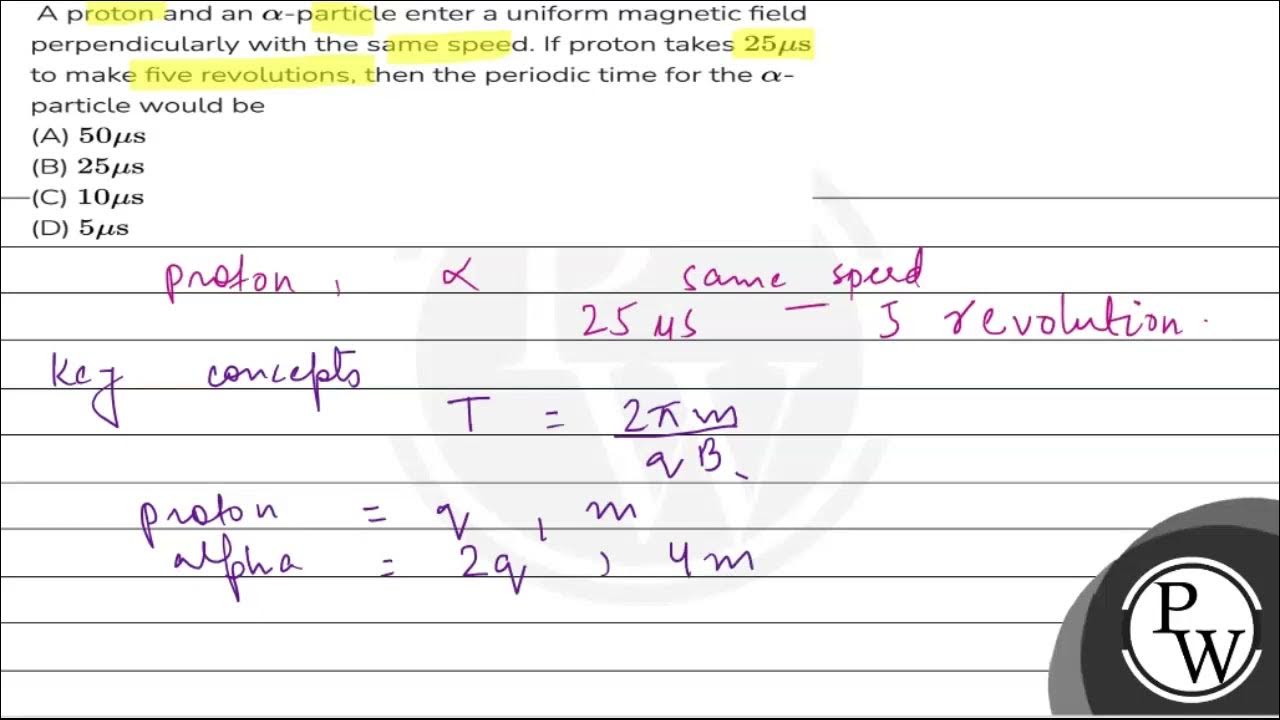 A proton and an α-particle enter a uniform magnetic field
perpendicularly with the same speed. If proton takes 25μs
to make five revolutions, then the periodic time for the α-
particle would be
(A) 50μs
(B) 25μs
(C) 10μs
(D) 5μs
proton, α same speed
25 μs — 5 revolution.
Key concepts
T = 2πm / qB
proton = q, m
alpha = 2q, 4m
P
W
PW